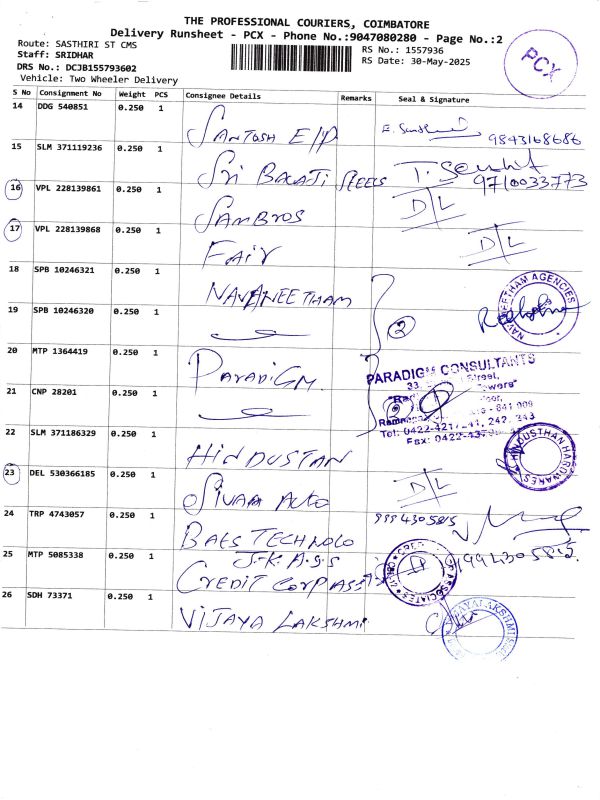 THE PROFESSIONAL COURIERS, COIMBATORE
Delivery Runsheet - PCX - Phone No.:9047080280 - Page No.:2
Route: SASTHIRI ST CMS
Staff: SRIDHAR
DRS No.: DCJB155793602
Vehicle: Two Wheeler Delivery
RS No.: 1557936
RS Date: 30-May-2025
PCX
S No Consignment No Weight PCS Consignee Details Remarks Seal & Signature
14 DDG 540851 0.250 1 SANTOSH E/P 9843168686
15 SLM 371119236 0.250 1 Sri BALATJi STEELS 9710033773
16 VPL 228139861 0.250 1 SAMBROS D/L
17 VPL 228139868 0.250 1 FAIY D/L
18 SPB 10246321 0.250 1 NAVANEETHAM
NAVANEETHAM AGENCIES
19 SPB 10246320 0.250 1 2
20 MTP 1364419 0.250 1 PARADiGM
PARADIGM CONSULTANTS
Street,
21 CNP 28201 0.250 1 2
22 SLM 371186329 0.250 1 HINDUSTAN
HINDUSTHAN HARDWARES
23 DEL 530366185 0.250 1 SIVAA AUTO D/L
24 TRP 4743057 0.250 1 BAES TECHNOLO 9994305815
J.K. A.g.s
25 MTP 5085338 0.250 1 CREDIT CORP ASS 9994305815
ASSOCIATES
26 SDH 73371 0.250 1 VIJAYA LAKSHMI
VIJAYALAKSHMI